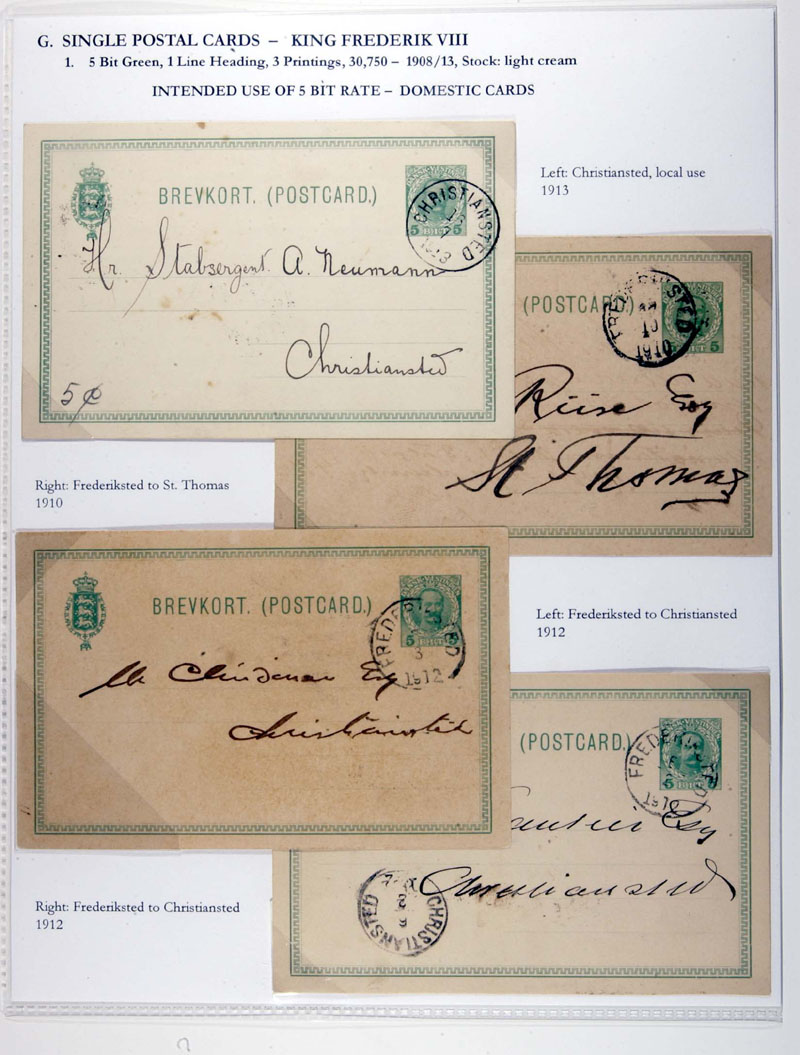 G. SINGLE POSTAL CARDS – KING FREDERIK VIII
1. 5 Bit Green, 1 Line Heading, 3 Printings, 30,750 – 1908/13, Stock: light cream
INTENDED USE OF 5 BIT RATE – DOMESTIC CARDS
BREVKORT. (POSTCARD.)
5 BIT 5
CHRISTIANSTED
1913
Hr. Stabsergent A. Neumann
Christiansted
5¢
Left: Christiansted, local use
1913
(POSTCARD.)
FREDERIKSTED
1910
5
Riise Esq
St Thomas
Right: Frederiksted to St. Thomas
1910
BREVKORT. (POSTCARD.)
5 BIT
FREDERIKSTED
3
1912
Esq
Christiansted
Left: Frederiksted to Christiansted
1912
(POSTCARD.)
FREDERIKSTED
5 BIT 5
Esq
Christiansted
CHRISTIANSTED
Right: Frederiksted to Christiansted
1912